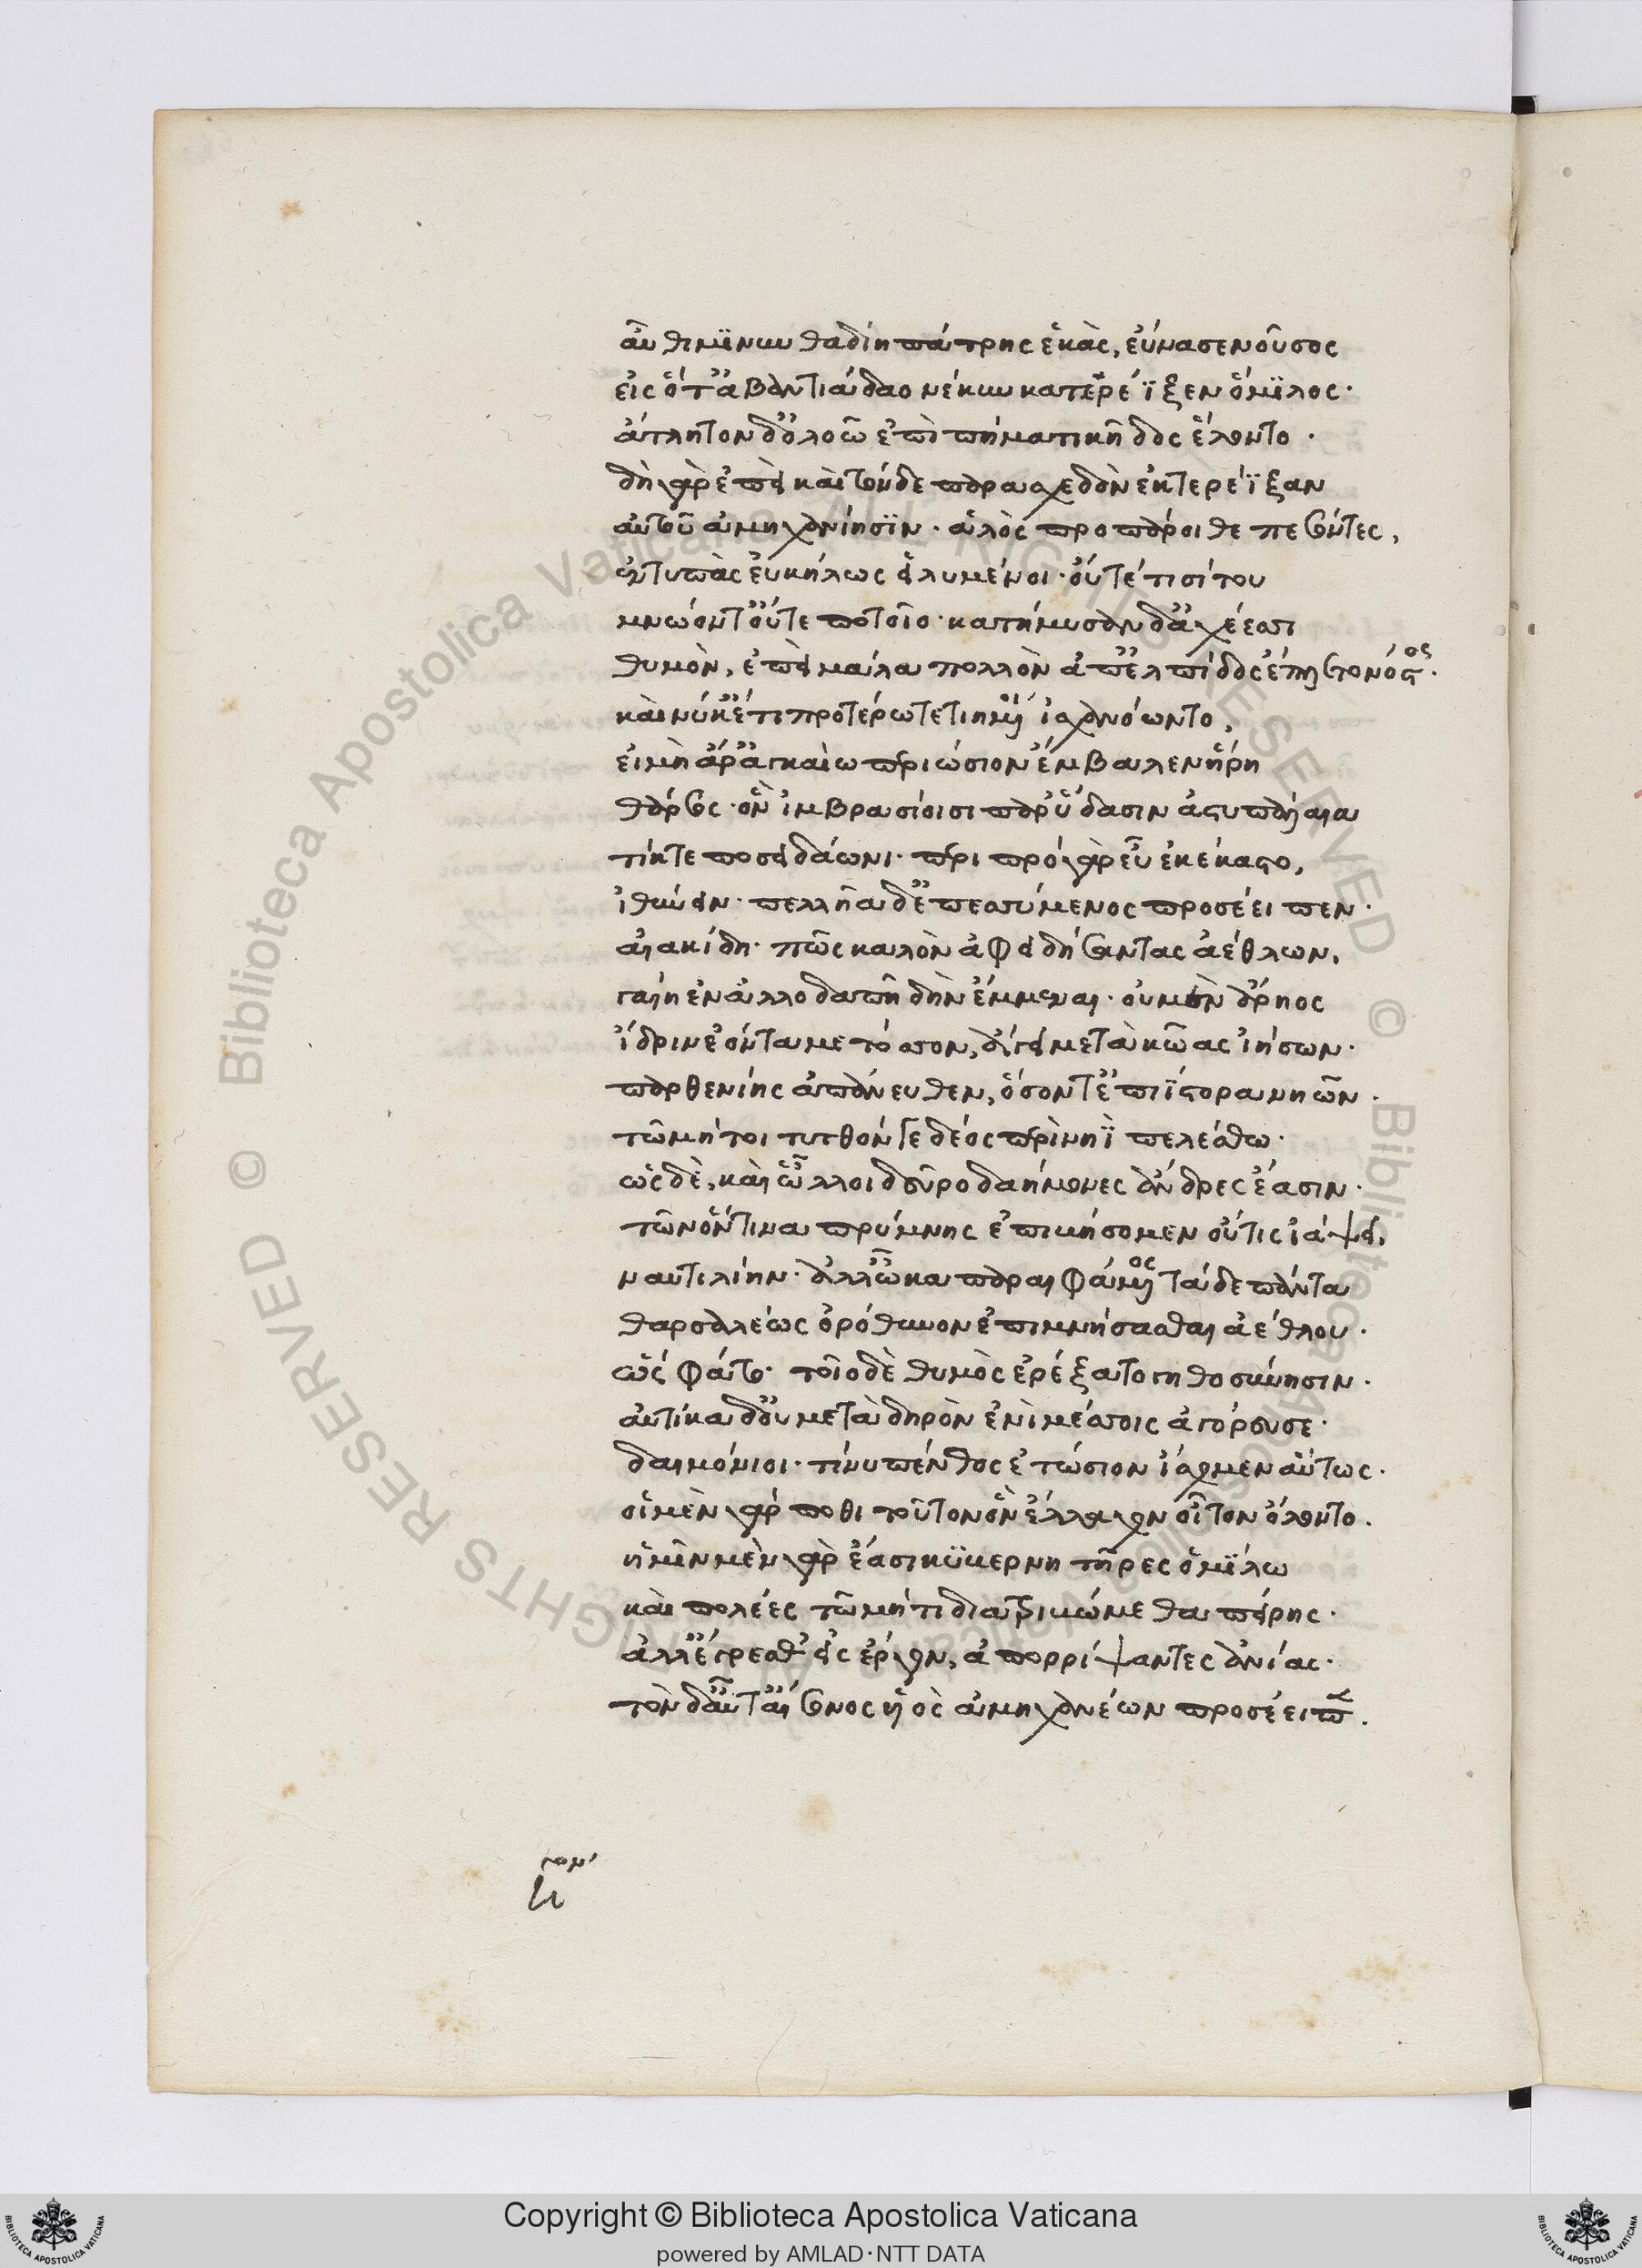 αὖθι μινυνθαδίη πάτρης ἑκὰς, εὔνασε νοῦσος
εἰς ὅτ' ἀβαντιάδαο νέκυν κατερέϊξεν ὅμιλος·
ἄτλητον δ' ὀλοῶ ἐπὶ πήματι κῆδος ἕλοντο·
δὴ γὰρ ἐπεὶ καὶ τόνδε παρασχεδὸν ἐκτερέϊξαν
αὐτοῦ ἀμηχανίησιν· ἁλὸς προπάροιθε πεσόντες,
ἐντυπὰς εὐκήλως εἰλυμένοι· οὔτέ τι σίτου
μνώοντ' οὔτε ποτοῖο· κατήμυσαν δ' ἀχέεσσι
θυμὸν, ἐπεὶ μάλα πολλὸν ἀπ' ἐλπίδος ἔπλετο νόστος·
καὶ νύ κ' ἔτι προτέρω τετιημένοι ἰσχανόωντο,
εἰ μὴ ἄρ' ἀγκαίω περιώσιον ἔμβαλεν ἥρη
θάρσος· ὃν ἰμβρασίοισι παρ' ὕδασιν ἀστυπάλαια
τίκτε ποσειδάωνι· περιπρὸ γὰρ εὖ ἐκέκαστο,
ἰθύειν· πελλῆα δ' ἐπεσσύμενος προσέειπεν·
αἰακίδη· πῶς καλὸν ἀφειδήσαντας ἀέθλων,
γαίη ἐν ἀλλοδαπῆ δὴν ἔμμεναι· οὐ μὲν ἄρηος
ἴδριν ἐόντα με τόσσον, ἄγει μετὰ κῶας ἰήσων·
παρθενίης ἀπάνευθεν, ὅσον τ' ἐπιΐστορα νηῶν·
τῶ μή τοι τυτθόν γε δέος περὶ νηῒ πελέσθω·
ὣς δὲ, καὶ ὧλλοι δεῦρο δαήμονες ἄνδρες ἔασιν·
τῶν ὅντινα πρύμνης ἐπιβήσομεν οὔτις ἰάψει,
ναυτιλίην· ἀλλ' ὦκα παραιφάμενος τάδε πάντα
θαρσαλέως ὀρόθυνον ἐπιμνήσασθαι ἀέθλου·
ὣς φάτο· τοῖο δὲ θυμὸς ἐρέξατο γηθοσύνησιν·
αὐτίκα δ' οὐ μετὰ δηρὸν ἐνὶ μέσσοις ἀγόρευσε·
δαιμόνιοι· τί νυ πένθος ἐτώσιον ἴσχομεν αὔτως·
οἱ μὲν γάρ ποθι τοῦτον ὃν ἔλλαχον οἶτον ὄλοντο·
ἡμῖν μὲν γὰρ ἔασι κυβερνητῆρες ὁμίλω
καὶ πολέες τῶ μή τι διατριβώμεθα πείρης·
ἀλλ' ἔγρεσθ' εἰς ἔργον, ἀπορρίψαντες ἀνίας·
τὸν δ' αὖτ' αἴσονος ὑὸς ἀμηχανέων προσέειπ.
Copyright © Biblioteca Apostolica Vaticana
powered by AMLAD·NTT DATA